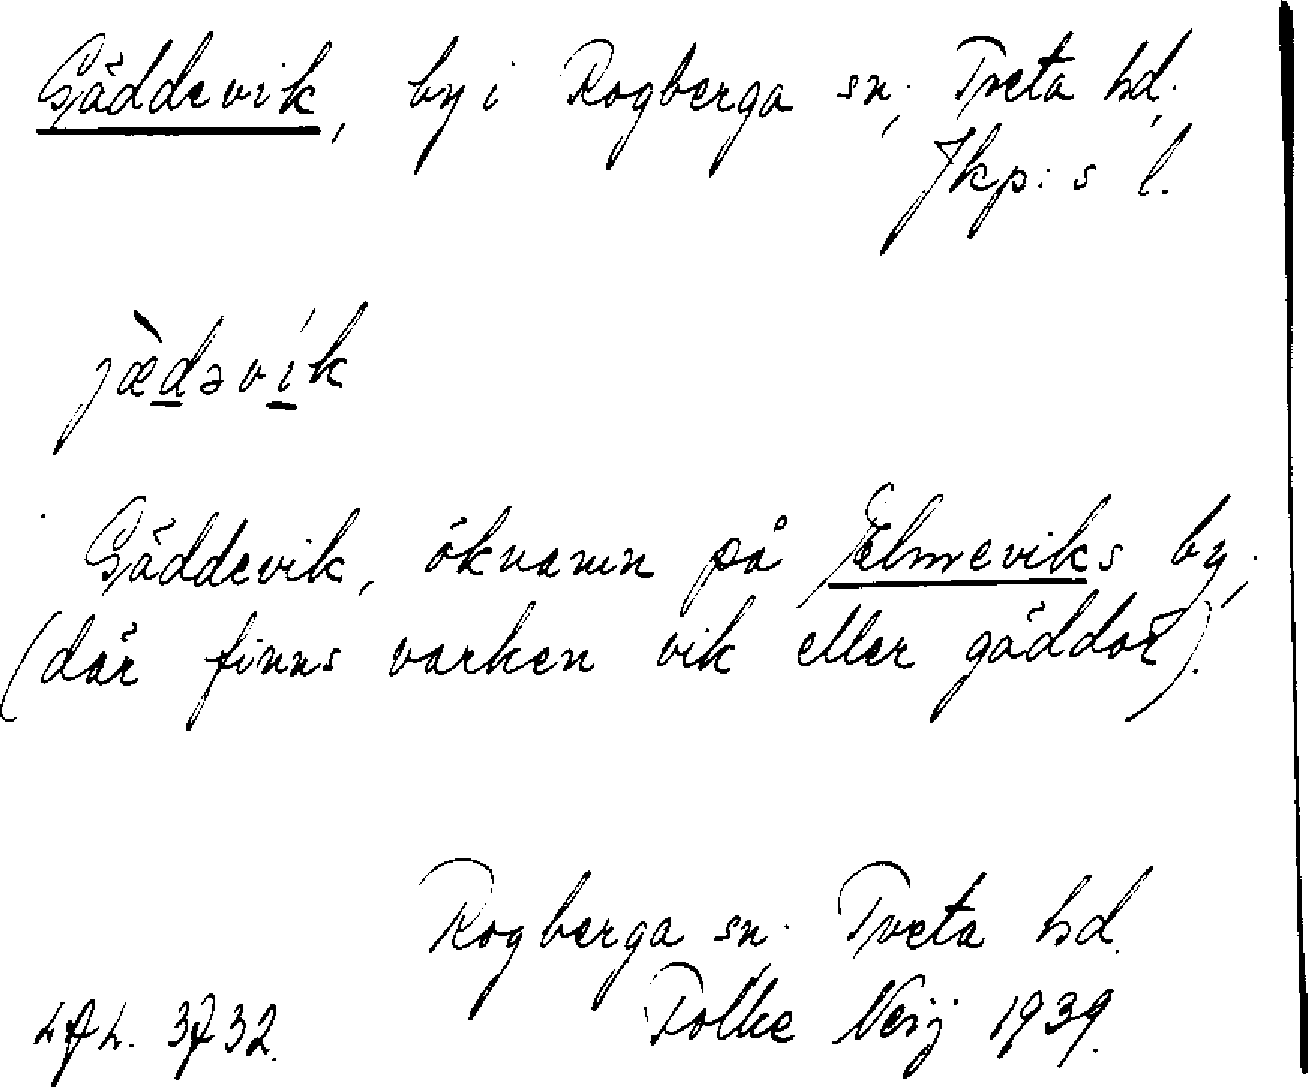 Gäddevik, by i Rogberga sn, Tveta hd,
Jkp:s l.
jæ̀dəvík
Gäddevik, öknamn på Elmeviks by,
(där finns varken vik eller gäddor).
Rogberga sn. Tveta hd.
Folke Neij 1939.
3732.